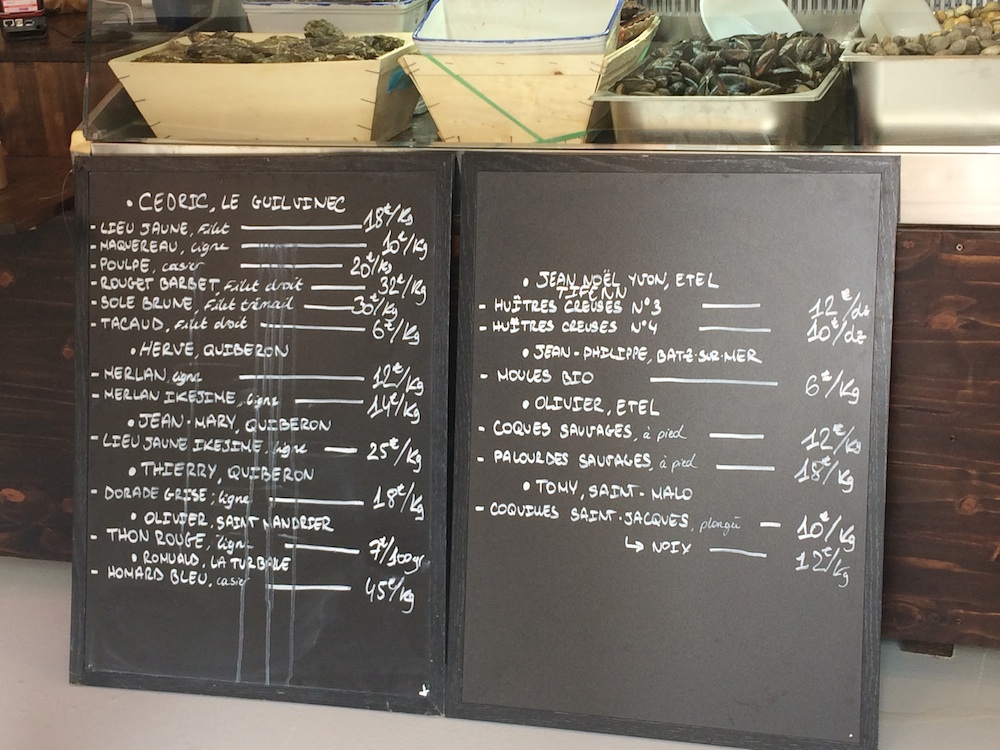 • CEDRIC, LE GUILVINEC
- LIEU JAUNE, Filet — 18€/Kg
- MAQUEREAU, ligne — 10€/Kg
- POULPE, casier — 20€/Kg
- ROUGET BARBET, Filet droit — 32€/Kg
- SOLE BRUNE, Filet trémail — 30€/Kg
- TACAUD, Filet droit — 6€/Kg
• HERVE, QUIBERON
- MERLAN, ligne — 12€/Kg
- MERLAN IKEJIME, ligne — 14€/Kg
• JEAN-MARY, QUIBERON
- LIEU JAUNE IKEJIME, ligne — 25€/Kg
• THIERRY, QUIBERON
- DORADE GRISE; ligne — 18€/Kg
• OLIVIER, SAINT MANDRIER
- THON ROUGE, ligne — 7€/100gr
• ROMUALD, LA TURBALLE
- HOMARD BLEU, casier — 45€/Kg
• JEAN NOËL YVON, ETEL
TIFENN
- HUÎTRES CREUSES N°3 — 12€/dz
- HUÎTRES CREUSES N°4 — 10€/dz
• JEAN-PHILIPPE, BATZ-SUR-MER
- MOULES BIO — 6€/Kg
• OLIVIER, ETEL
- COQUES SAUVAGES, à pied — 12€/Kg
- PALOURDES SAUVAGES, à pied — 18€/Kg
• TOMY, SAINT-MALO
- COQUILLES SAINT-JACQUES, plongée — 10€/Kg
↳ NOIX — 12€/Kg